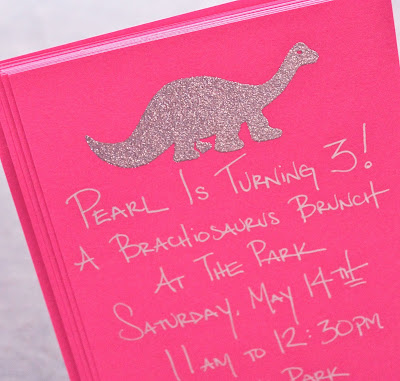 Pearl Is Turning 3!
A Brachiosaurus Brunch
At The Park
Saturday, May 14th
11am to 12:30pm
Park